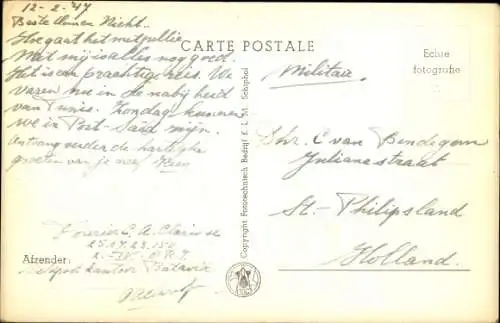 12-2-'47
Beste Nicht..
Hoe gaat het met jullie
Met mij is alles nog goed.
Het is een prachtige reis. We
varen nu in de nabijheid
van Tunis. Zondag kunnen
we in Port-Saïd zijn.
Ontvang verder de hartelijke
groeten van je neef Kees
CARTE POSTALE
Echte
fotografie
Militair
Dhr. C van Bendegom
Julianastraat
St-Philipsland
Holland.
Copyright Fototechnisch Bedrijf E. L. M. Schiphol
Fourier C. A.
25.07.23.150
Afzender:
kantoor Batavia